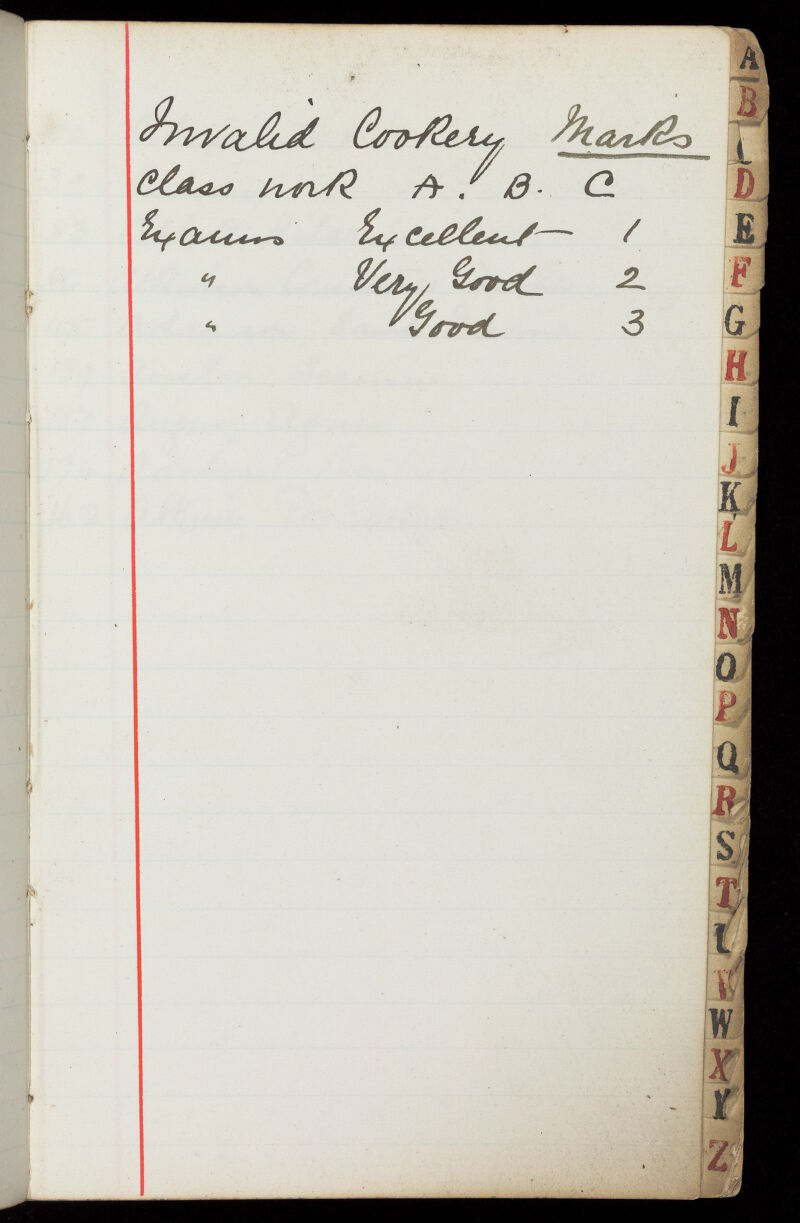 Invalid Cookery Marks
Class work A. B. C
Exams Excellent 1
" Very Good 2
" Good 3
A
B
D
E
F
G
H
I
J
K
L
M
N
O
P
Q
R
S
T
V
W
X
Y
Z